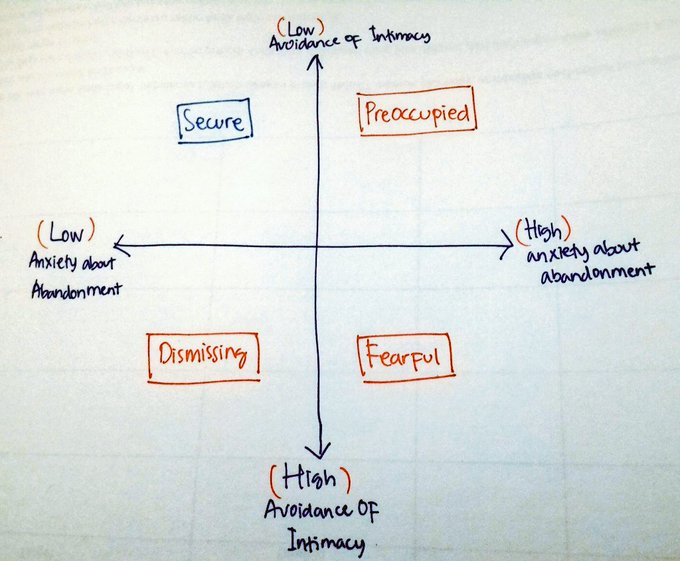 (Low)
Avoidance of Intimacy
Secure
Preoccupied
(Low)
Anxiety about
Abandonment
(High)
anxiety about
abandonment
Dismissing
Fearful
(High)
Avoidance Of
Intimacy